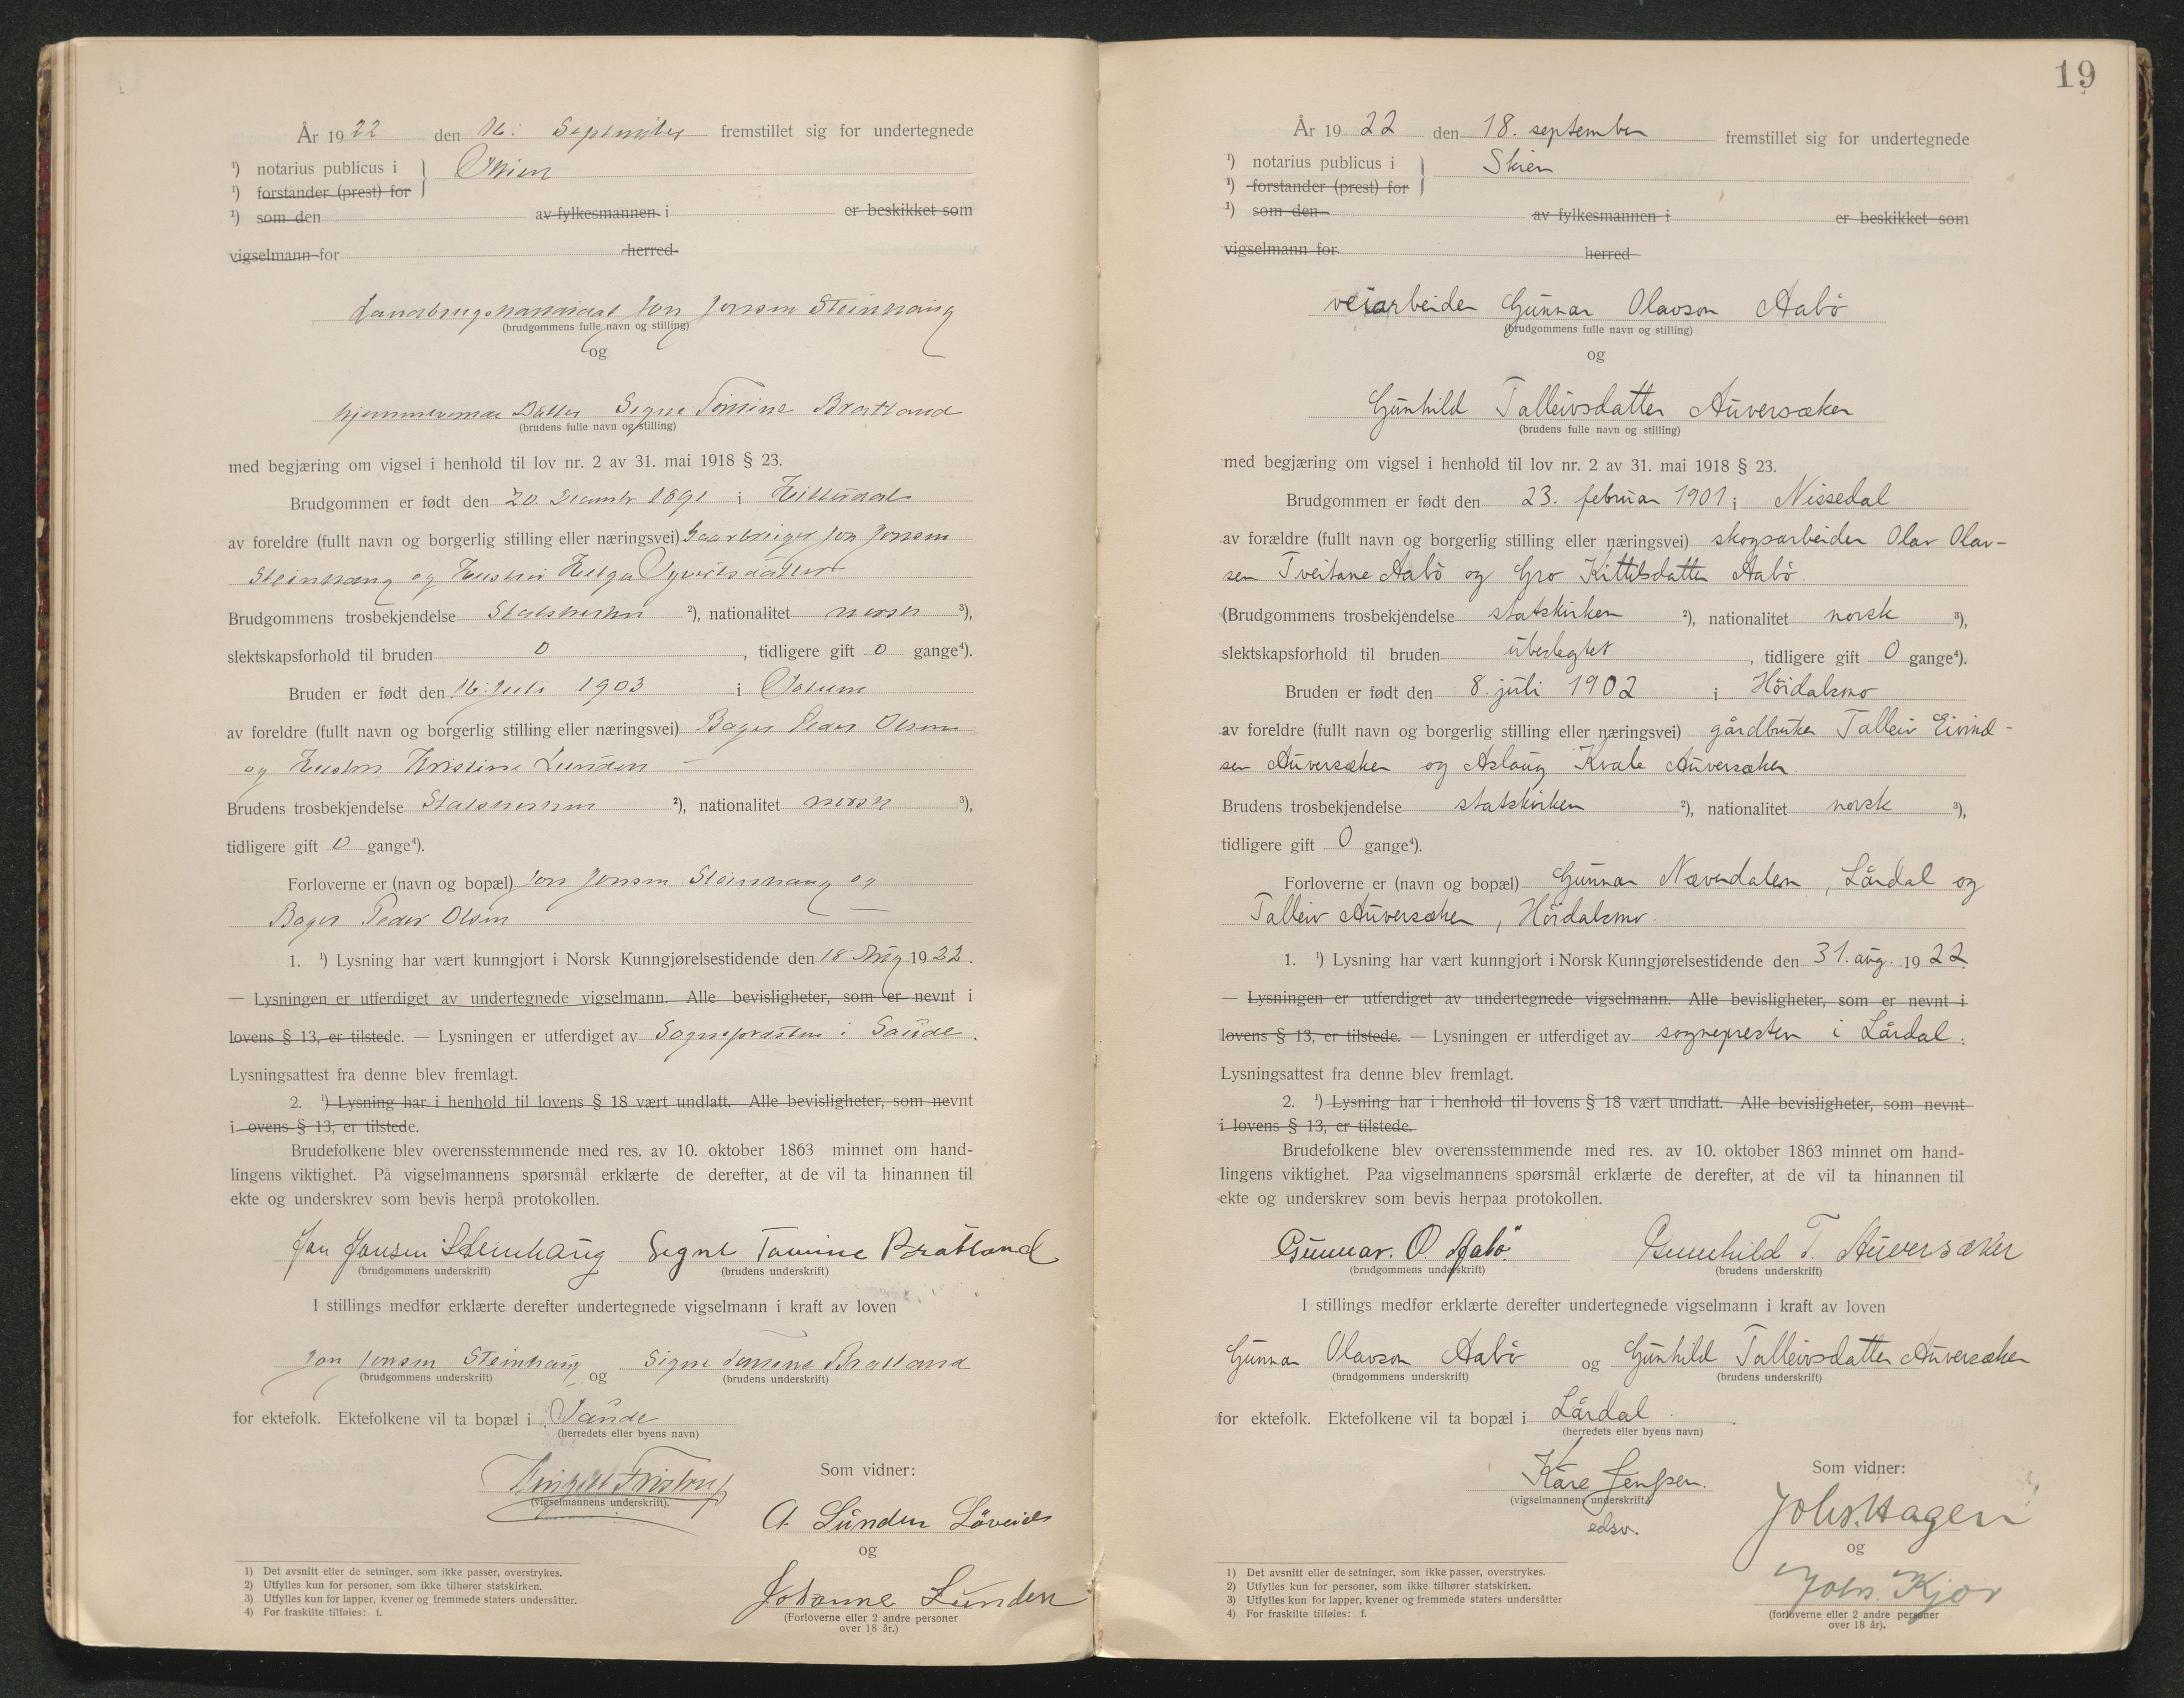 År 1922 den 16. September fremstillet sig for undertegnede
¹) notarius publicus i } Skien
¹) forstander (prest) for
¹) som den av fylkesmannen i er beskikket som
vigselmann for herred
Landbrugskandidat Jon Jonsen Steinhaug
(brudgommens fulle navn og stilling)
og
hjemmeværende Datter Signe Tomine Bratland
(brudens fulle navn og stilling)
med begjæring om vigsel i henhold til lov nr. 2 av 31. mai 1918 § 23.
Brudgommen er født den 20. December 1891 i Hitterdal
av foreldre (fullt navn og borgerlig stilling eller næringsvei) Gaardbruger Jon Jonsen
Steinhaug og Hustru Helga Syvertsdatter
Brudgommens trosbekjendelse Statskirken ²), nationalitet norsk ³),
slektskapsforhold til bruden 0, tidligere gift 0 gange⁴).
Bruden er født den 16. Juli 1903 i
av foreldre (fullt navn og borgerlig stilling eller næringsvei) Bager Peder Olsen
og Hustru Kristine Lunden
Brudens trosbekjendelse Statskirken ²), nationalitet norsk ³),
tidligere gift 0 gange⁴).
Forloverne er (navn og bopæl) Jon Jonsen Steinhaug og
Bager Peder Olsen
1. ¹) Lysning har vært kunngjort i Norsk Kunngjørelsestidende den 18 Aug 1922.
— Lysningen er utferdiget av undertegnede vigselmann. Alle bevisligheter, som er nevnt i
lovens § 13, er tilstede. — Lysningen er utferdiget av Sognepræsten i Saude.
Lysningsattest fra denne blev fremlagt.
2. ¹) Lysning har i henhold til lovens § 18 vært undlatt. Alle bevisligheter, som nevnt
i ovens § 13, er tilstede.
Brudefolkene blev overensstemmende med res. av 10. oktober 1863 minnet om hand-
lingens viktighet. På vigselmannens spørsmål erklærte de derefter, at de vil ta hinannen til
ekte og underskrev som bevis herpå protokollen.
Jon Jonsen Steinhaug Signe Tomine Bratland
(brudgommens underskrift) (brudens underskrift)
I stillings medfør erklærte derefter undertegnede vigselmann i kraft av loven
Jon Jonsen Steinhaug og Signe Tomine Bratland
(brudgommens underskrift) (brudens underskrift)
for ektefolk. Ektefolkene vil ta bopæl i Saude
(herredets eller byens navn)
Fristrup
(vigselmannens underskrift).
Som vidner:
A. Lunden Løveid
og
Johanne Lunden
(Forloverne eller 2 andre personer
over 18 år.)
1) Det avsnitt eller de setninger, som ikke passer, overstrykes.
2) Utfylles kun for personer, som ikke tilhører statskirken.
3) Utfylles kun for lapper, kvener og fremmede staters undersåtter.
4) For fraskilte tilføies: f.
19
År 1922 den 18. september fremstillet sig for undertegnede
¹) notarius publicus i } Skien
¹) forstander (prest) for
¹) som den av fylkesmannen i er beskikket som
vigselmann for herred
veiarbeider Gunnar Olavson Aabö
(brudgommens fulle navn og stilling)
og
Gunhild Talleivsdatter Auversæker
(brudens fulle navn og stilling)
med begjæring om vigsel i henhold til lov nr. 2 av 31. mai 1918 § 23.
Brudgommen er født den 23. februar 1901 i Nissedal
av forældre (fullt navn og borgerlig stilling eller næringsvei) skogsarbeider Olav Olav-
sen Tveitane Aabö og Gro Kittilsdatter Aabö.
(Brudgommens trosbekjendelse statskirken ²), nationalitet norsk ³),
slektskapsforhold til bruden ubeslegtet, tidligere gift 0 gange⁴).
Bruden er født den 8. juli 1902 i Höidalsmo
av foreldre (fullt navn og borgerlig stilling eller næringsvei) gårdbruker Talleiv Eivind-
sen Auversæker og Aslaug Kvale Auversæker.
Brudens trosbekjendelse statskirken ²), nationalitet norsk ³),
tidligere gift 0 gange⁴).
Forloverne er (navn og bopæl) Gunnar Nævendalen, Lårdal og
Talleiv Auversæker, Höidalsmo.
1. ¹) Lysning har vært kunngjort i Norsk Kunngjørelsestidende den 31. aug. 1922.
— Lysningen er utferdiget av undertegnede vigselmann. Alle bevisligheter, som er nevnt i
lovens § 13, er tilstede. — Lysningen er utferdiget av sognepresten i Lårdal.
Lysningsattest fra denne blev fremlagt.
2. ¹) Lysning har i henhold til lovens § 18 vært undlatt. Alle bevisligheter, som nevnt
i lovens § 13, er tilstede.
Brudefolkene blev overensstemmende med res. av 10. oktober 1863 minnet om hand-
lingens viktighet. Paa vigselmannens spørsmål erklærte de derefter, at de vil ta hinannen til
ekte og underskrev som bevis herpaa protokollen.
Gunnar. O. Aabö. Gunhild T. Auversæker
(brudgommens underskrift) (brudens underskrift)
I stillings medfør erklærte derefter undertegnede vigselmann i kraft av loven
Gunnar Olavson Aabö og Gunhild Talleivsdatter Auversæker
(brudgommens underskrift) (brudens underskrift)
for ektefolk. Ektefolkene vil ta bopæl i Lårdal.
(herredets eller byens navn)
Kåre Jenssen.
(vigselmannens underskrift).
edsv.
Som vidner:
Johs. Hagen
og
Johs. Kjær
(forloverne eller 2 andre personer
over 18 år).
1) Det avsnitt eller de setninger, som ikke passer, overstrykes.
2) Utfylles kun for personer, som ikke tilhører statskirken.
3) Utfylles kun for lapper, kvener og fremmede staters undersåtter
4) For fraskilte tilføies: f.